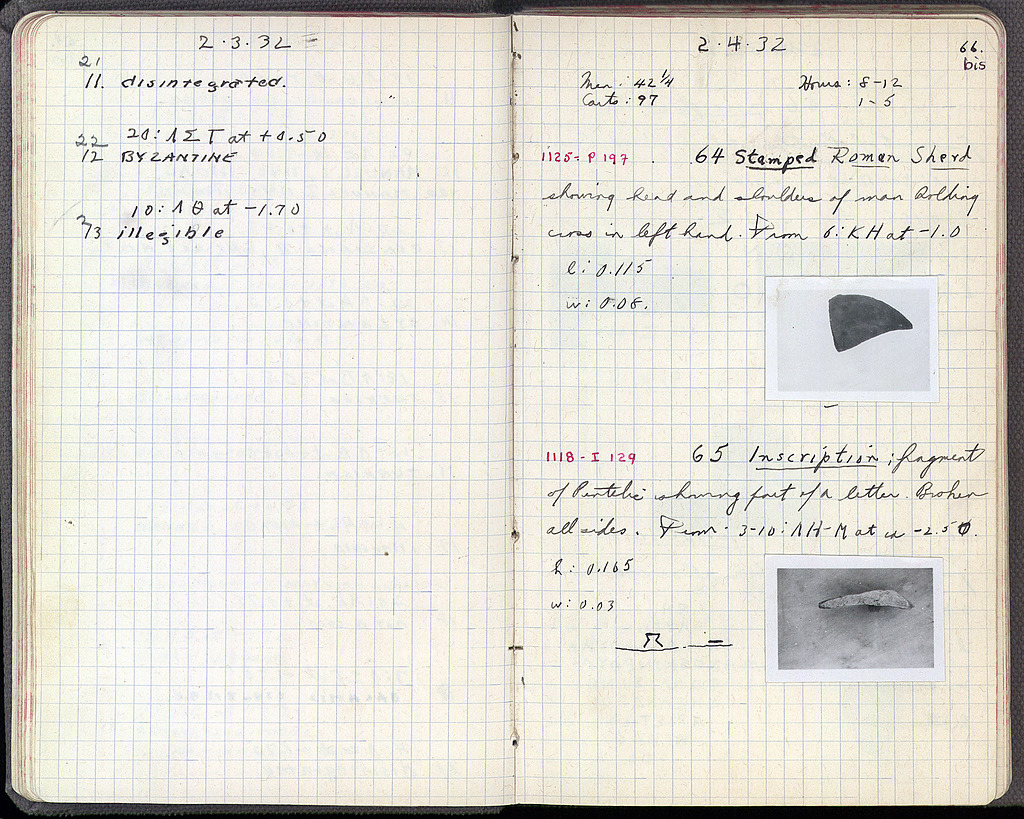 2·3·32
21
11. disintegrated.
20: ΛΣΤ at +0.50
22
12 BYZANTINE
10: ΛΘ at -1.70
13 illegible
2·4·32
66.
bis
Men: 42 1/4
Hours: 8-12
Carts: 97
1-5
1125- P 197 . 64 Stamped Roman Sherd
showing head and shoulders of man holding
cross in left hand. From 6: ΚΗ at -1.0
l: 0.115
w: 0.08.
1118 - I 129 65 Inscription; fragment
of Pentelic showing part of a letter. Broken
all sides. From 3-10: ΛΗ-Μ at ca -2.50.
h: 0.165
w: 0.03